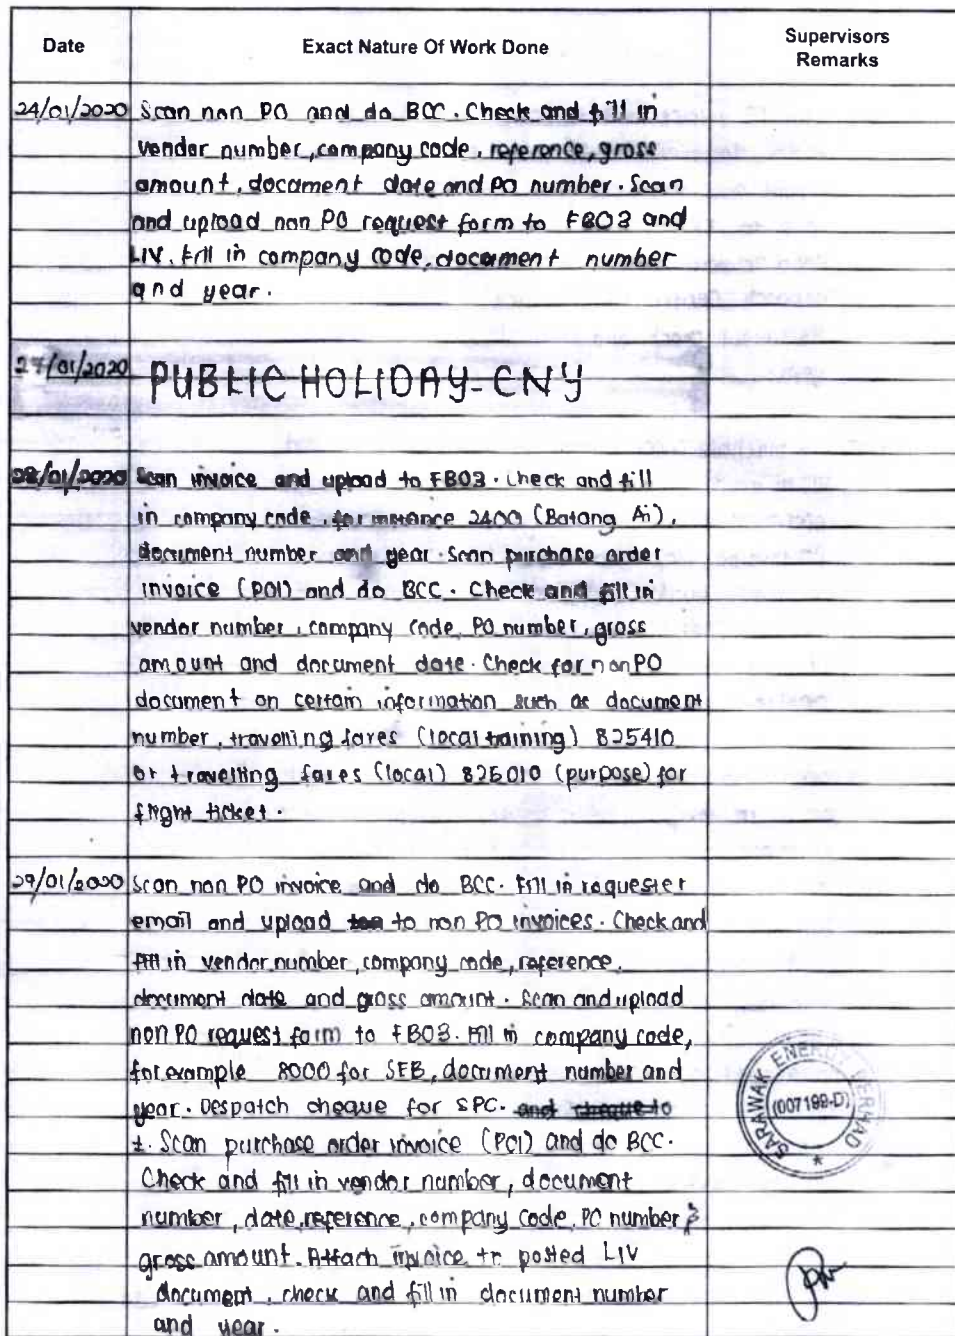 Date Exact Nature Of Work Done Supervisors Remarks
24/01/2020 Scan non PO and do BCC. Check and fill in
vendor number, company code, reference, gross
amount, document date and PO number. Scan
and upload non PO request form to FB03 and
LIV. Fill in company code, document number
and year.
27/01/2020 PUBLIC HOLIDAY - CNY
28/01/2020 Scan invoice and upload to FB03. Check and fill
in company code, for instance 2400 (Batang Ai),
document number and year. Scan purchase order
invoice (POI) and do BCC. Check and fill in
vendor number, company code, PO number, gross
amount and document date. Check for non PO
document on certain information such as document
number, travelling fares (local training) 825410
or travelling fares (local) 825010 (purpose) for
flight ticket.
29/01/2020 Scan non PO invoice and do BCC. Fill in requester
email and upload to non PO invoices. Check and
fill in vendor number, company code, reference,
document date and gross amount. Scan and upload
non PO request form to FB03. Fill in company code,
for example 8000 for SEB, document number and
year. Despatch cheque for SPC. and cheque to
Scan purchase order invoice (POI) and do BCC.
Check and fill in vendor number, document
number, date, reference, company code, PO number &
gross amount. Attach invoice to posted LIV
document, check and fill in document number
and year.
SARAWAK ENERGY BERHAD
(007199-D)
*